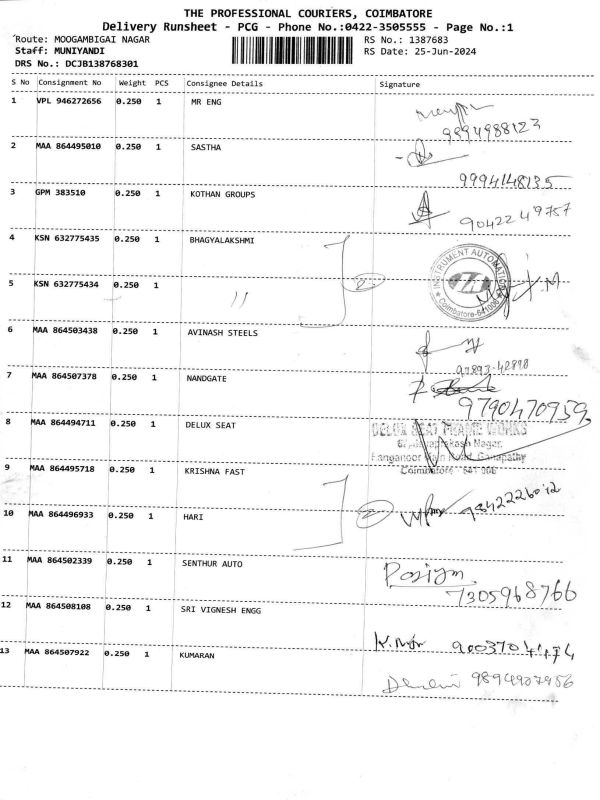 THE PROFESSIONAL COURIERS, COIMBATORE
Delivery Runsheet - PCG - Phone No.:0422-3505555 - Page No.:1
Route: MOOGAMBIGAI NAGAR RS No.: 1387683
Staff: MUNIYANDI RS Date: 25-Jun-2024
DRS No.: DCJB138768301
S No Consignment No Weight PCS Consignee Details Signature
1 VPL 946272656 0.250 1 MR ENG
9994988123
2 MAA 864495010 0.250 1 SASTHA
9994148135
3 GPM 383510 0.250 1 KOTHAN GROUPS
9042249757
4 KSN 632775435 0.250 1 BHAGYALAKSHMI
INSTRUMENT AUTOMATION
Coimbatore-641006
5 KSN 632775434 0.250 1 "
2
6 MAA 864503438 0.250 1 AVINASH STEELS
97893-42898
7 MAA 864507378 0.250 1 NANDGATE
9790470959
8 MAA 864494711 0.250 1 DELUX SEAT
DELUX SEAT FRAME WORKS
Nagar
Road, Ganapathy
Coimbatore - 641 006
9 MAA 864495718 0.250 1 KRISHNA FAST
2 9842226012
10 MAA 864496933 0.250 1 HARI
11 MAA 864502339 0.250 1 SENTHUR AUTO
7305968766
12 MAA 864508108 0.250 1 SRI VIGNESH ENGG
13 MAA 864507922 0.250 1 KUMARAN
9894907956